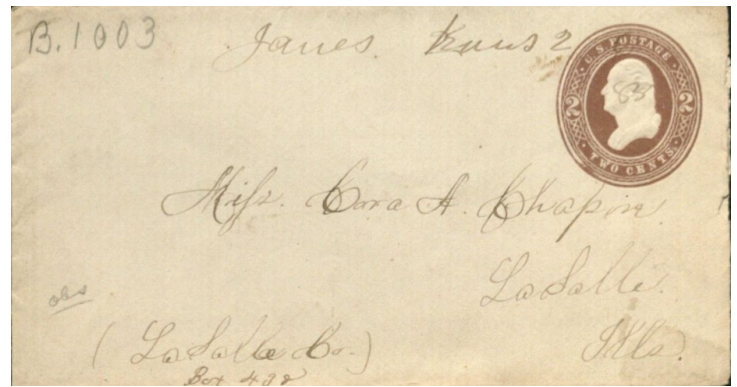 B.1003
Janes
2
U.S. POSTAGE
2 2
TWO CENTS
Miss. Cora A. Chapin
LaSalle.
Ills.
obs
(LaSalle Co.)
Box 492